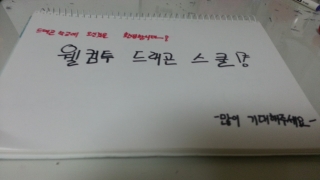 드래곤 학교에 오신걸 환영합니다~!
웰컴투 드래곤 스쿨!
-많이 기대해주세요-